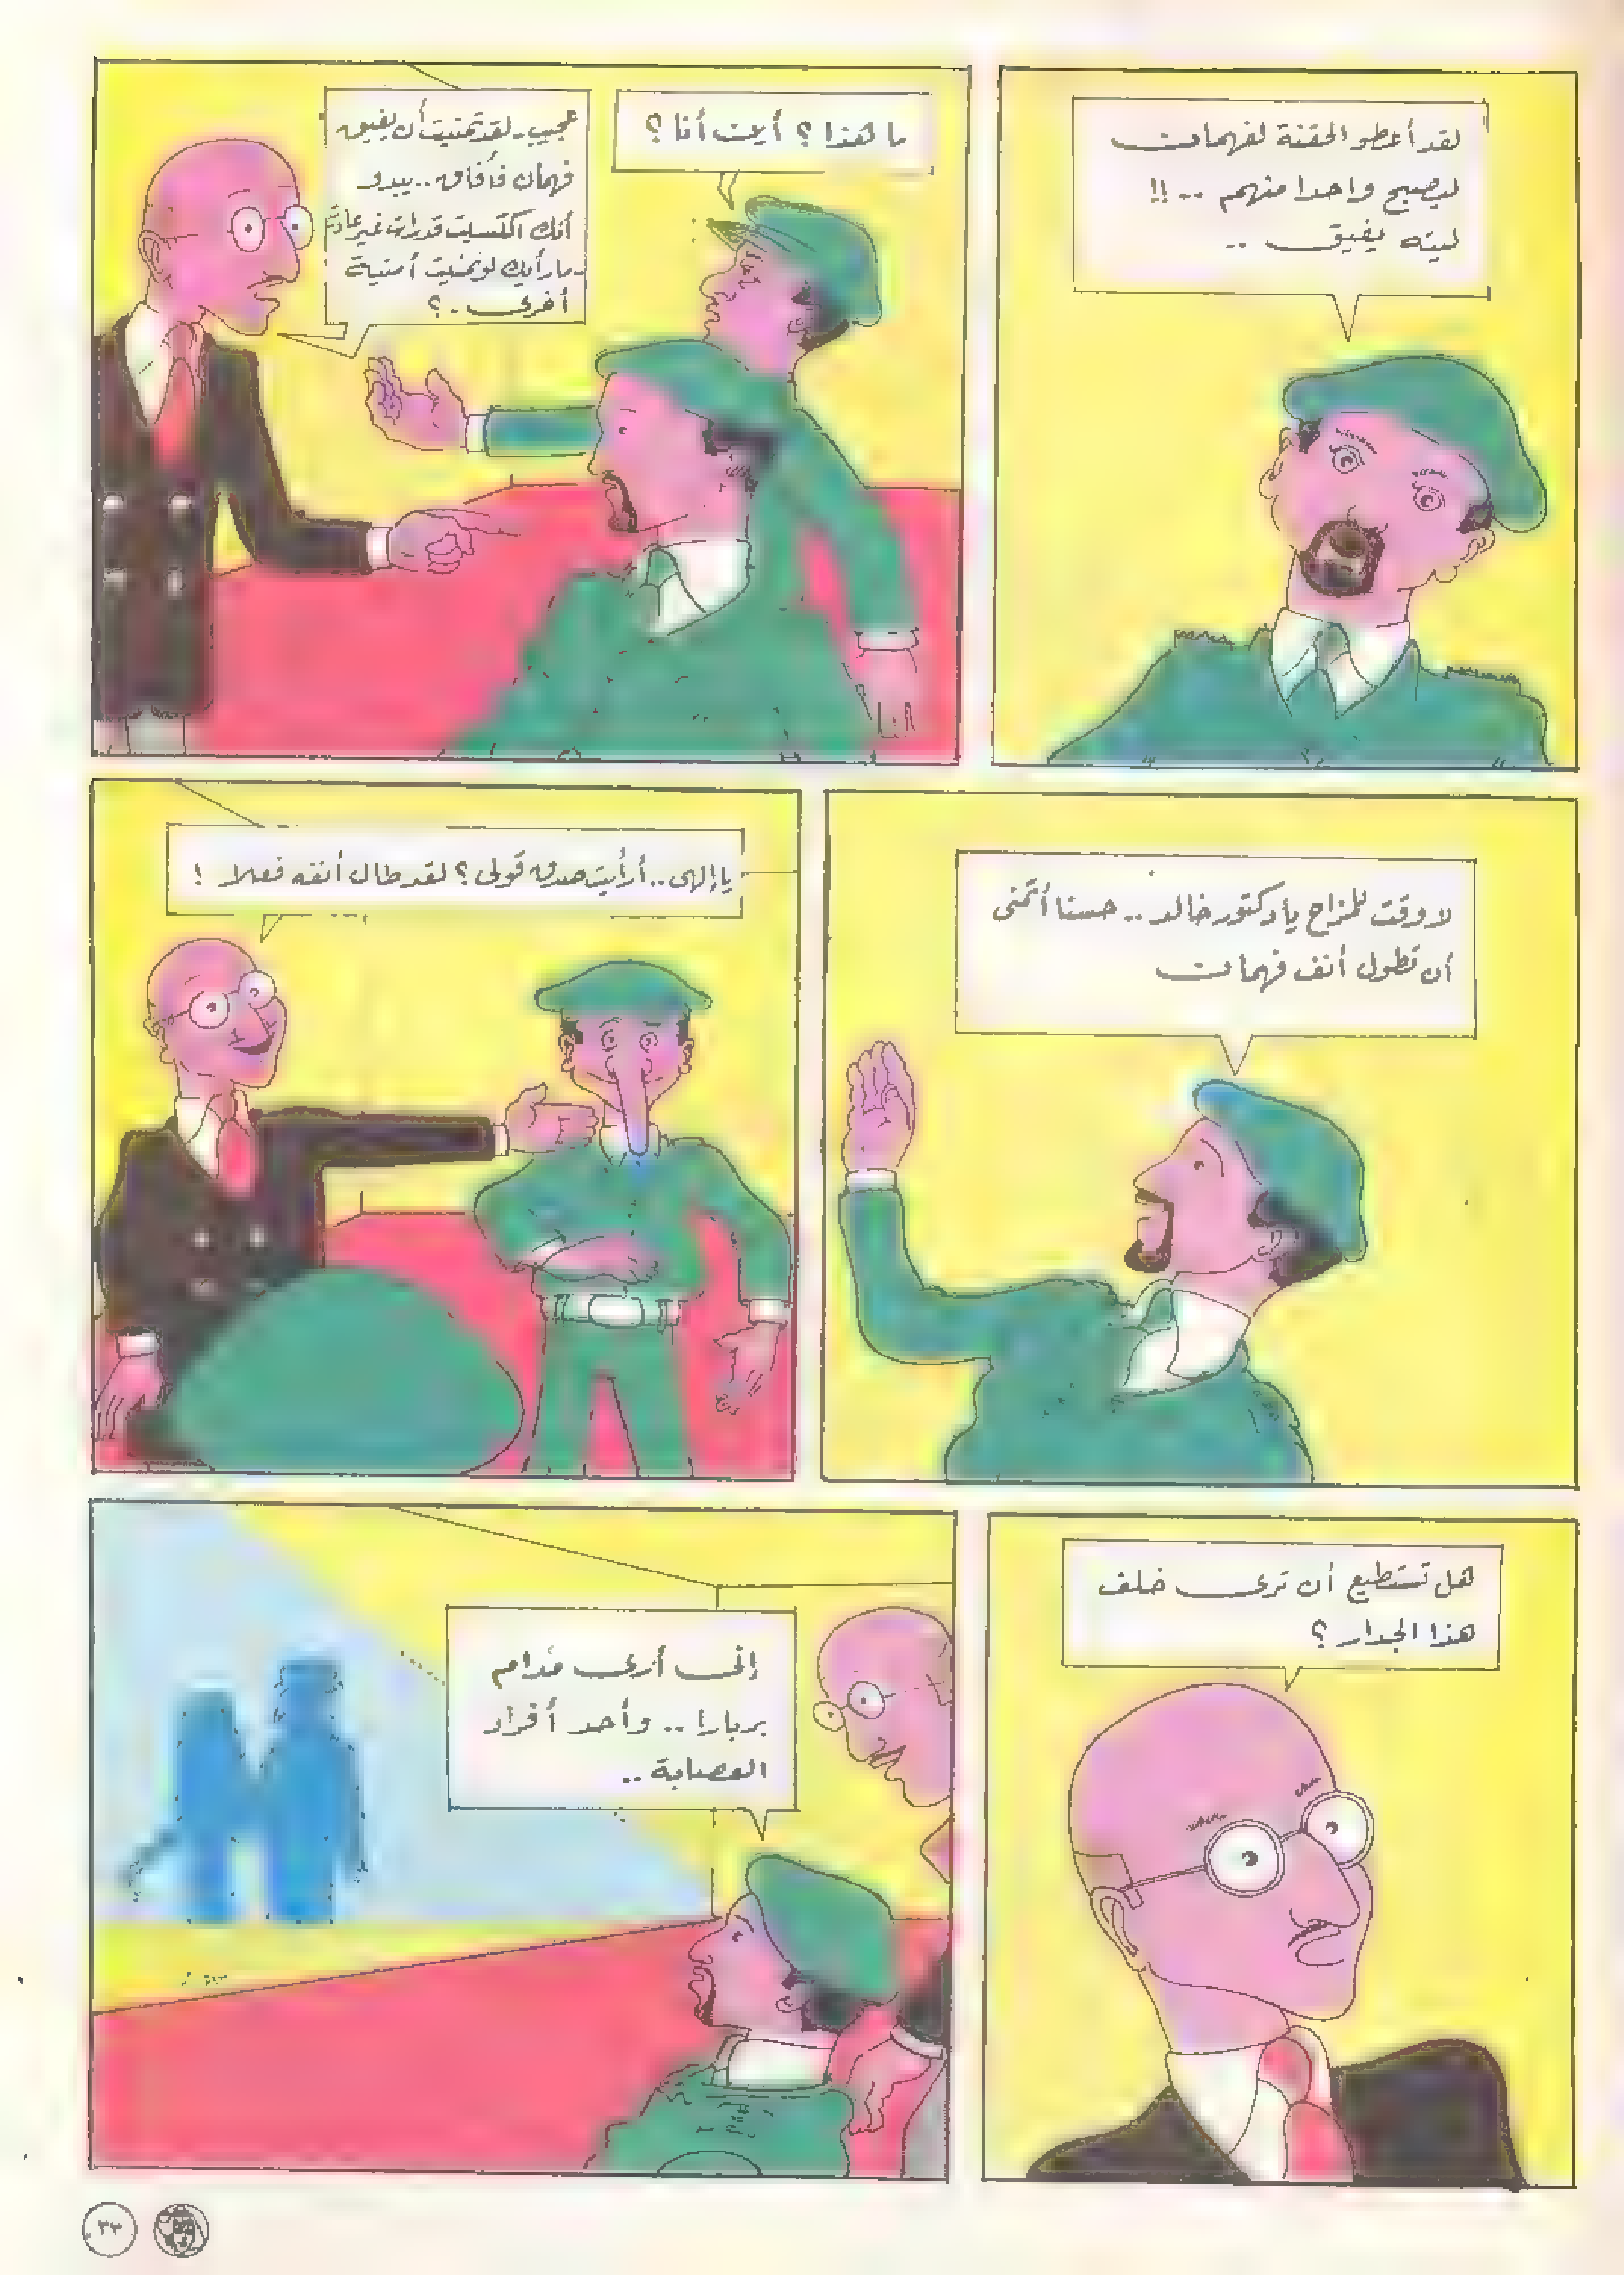 لقد أعطو الحقنة لفهمان
ليصبح واحدا منهم .. !!
ليته يفيق ..
ما هذا ؟ أين أنا ؟
عجيب .. لقد تمنيت أن يفيق
فهمان فأفاق .. يبدو
أنك اكتسبت قدرات غير عادية
ما رأيك لو تمنيت أمنية
أخرى .. ؟
لا وقت للمزاح يا دكتور خالد .. حسنا أتمنى
أن تطول أنف فهمان
يا إلهى .. أرأيت صدق قولى ؟ لقد طال أنفه فعلا !
هل تستطيع أن ترى خلف
هذا الجدار ؟
إنى أرى مدام
بربارا .. وأحد أفراد
العصابة ..
٣٣